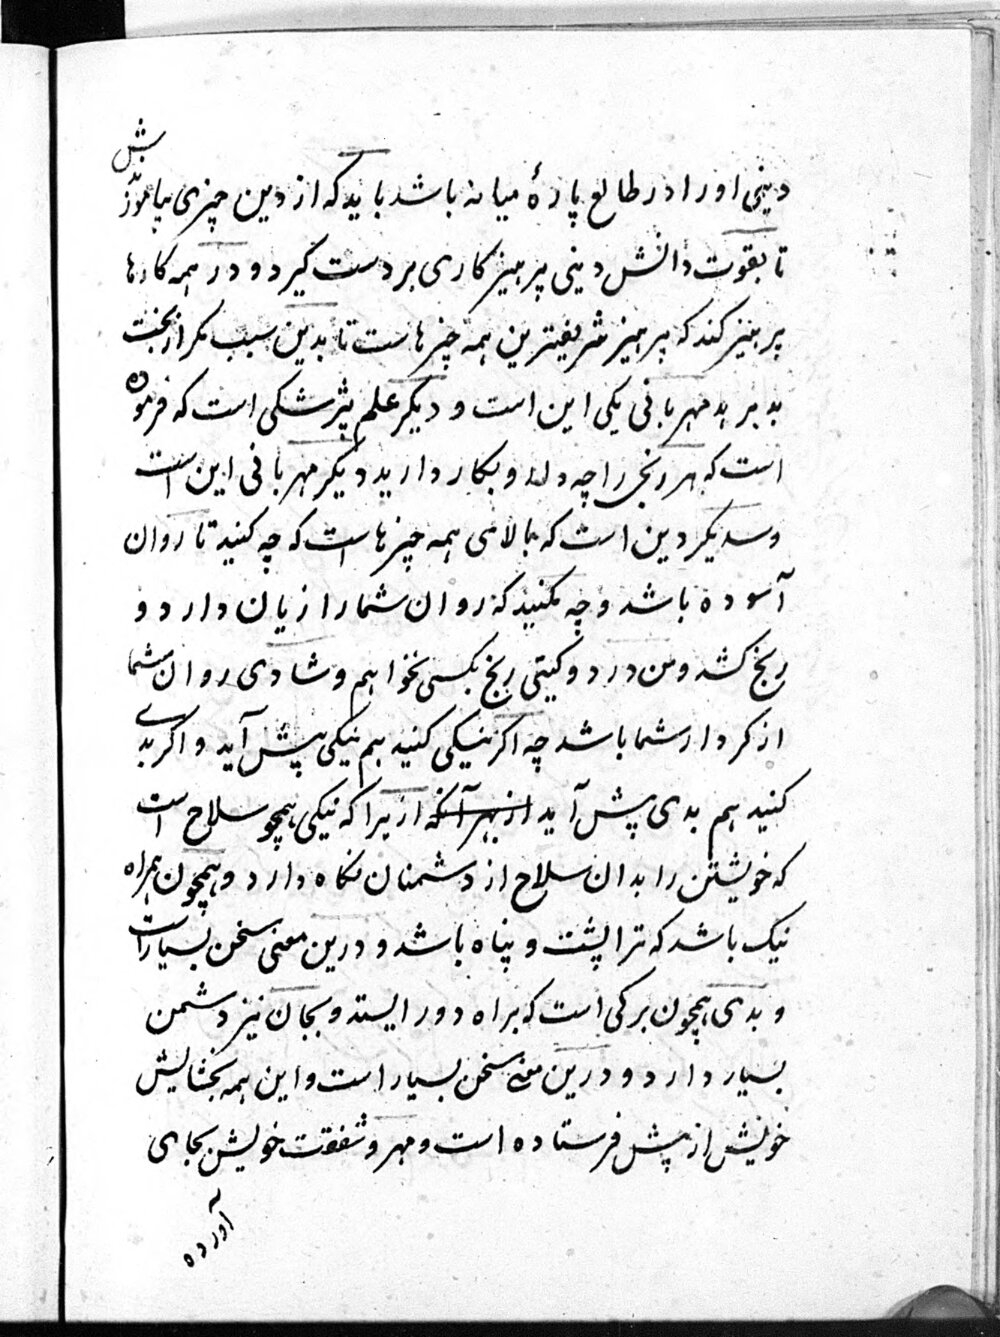 دینی او را در طالع پارهٔ میانه باشد باید که از دین چیزی بیاموزندش
تا بقوت دانش دینی پرهیزکاری بر دست گیرد و در همه کارها
پرهیز کند که پرهیز شریفترین همه چیزهاست تا بدین سبب مکر از بخت
بد برهد مهربانی یکی این است و دیگر علم پژشکی است که فرموده
است که هر رنجی را چه دارو بکار دارید دیگر مهربانی این است
وسدیگر دین است که بالای همه چیزهاست که چه کنید تا روان
آسوده باشد و چه نکنید که روان شما را زیان دارد و
رنج کشد و من در دو کیتی رنج بکسی نخواهم و شادی روان شما
از کردار شما باشد چه اکر نیکی کنید هم نیکی پیش آید و اکر بدی
کنید هم بدی پیش آید از بهر آنکه از برا که نیکی همچو سلاح است
که خویشتن را بدان سلاح از دشمنان نکاه دارد و همچون همراه
نیک باشد که ترا پشت و پناه باشد و درین معنی سخن بسیارست
و بدی همچون برکی است که براه دور ایستد و بجان نیز دشمن
بسیار دارد و درین معنی سخن بسیار است و این همه بخشایش
خویش از پیش فرستاده است و مهر و شفقت خویش بجای
آورده